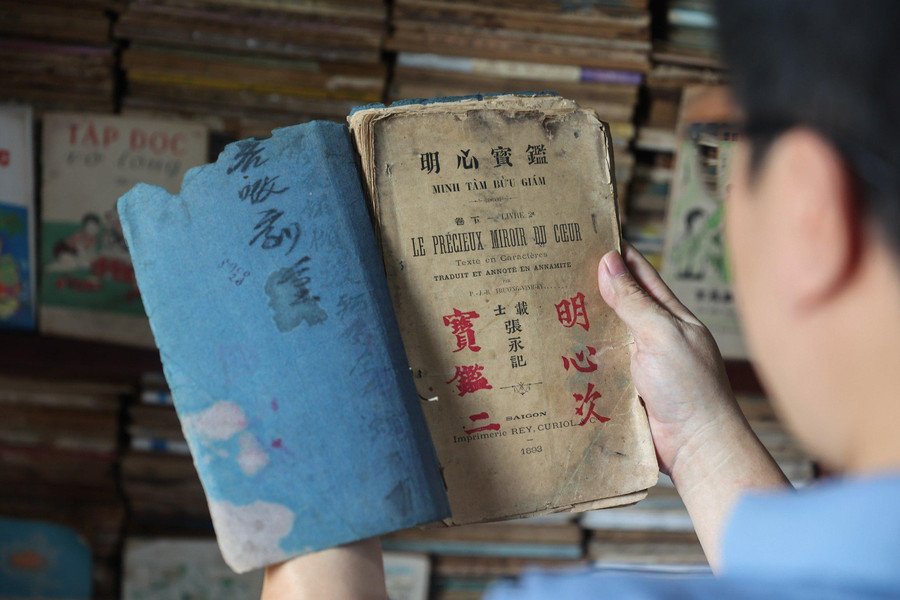 TẬP ĐỌC
vỡ lòng
明心寶鑑
MINH TÂM BỬU GIÁM
卷下 — LIVRE 2e
LE PRÉCIEUX MIROIR DU CŒUR
Texte en Caractères
TRADUIT ET ANNOTÉ EN ANNAMITE
PAR
P.-J.-B. TRUONG-VINH-KY
載
士
張永記
明心次
寶鑑二
SAIGON
Imprimerie REY, CURIOL
1893